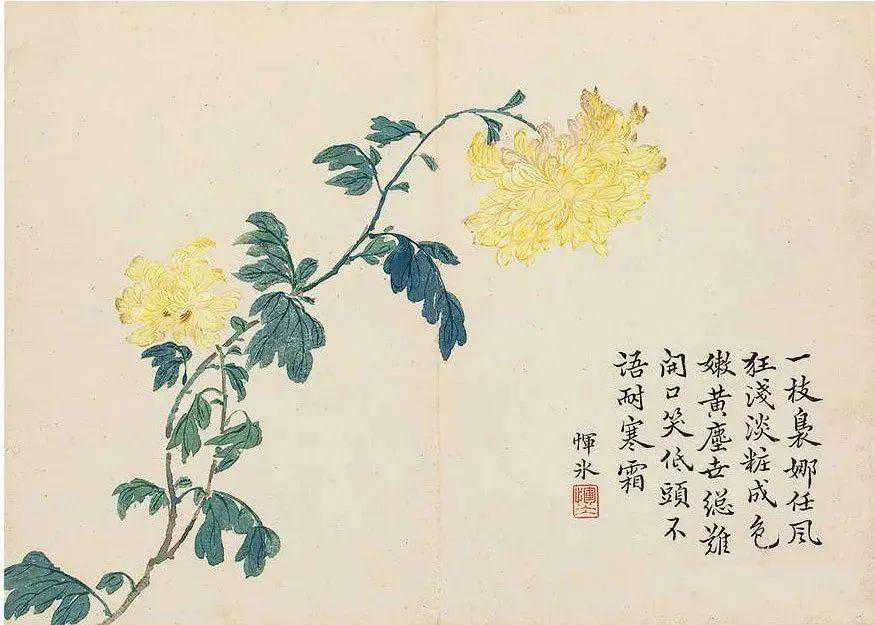 一枝裊娜任風
狂淺淡粧成色
嫩黃塵世總難
開口笑低頭不
語耐寒霜
惲冰